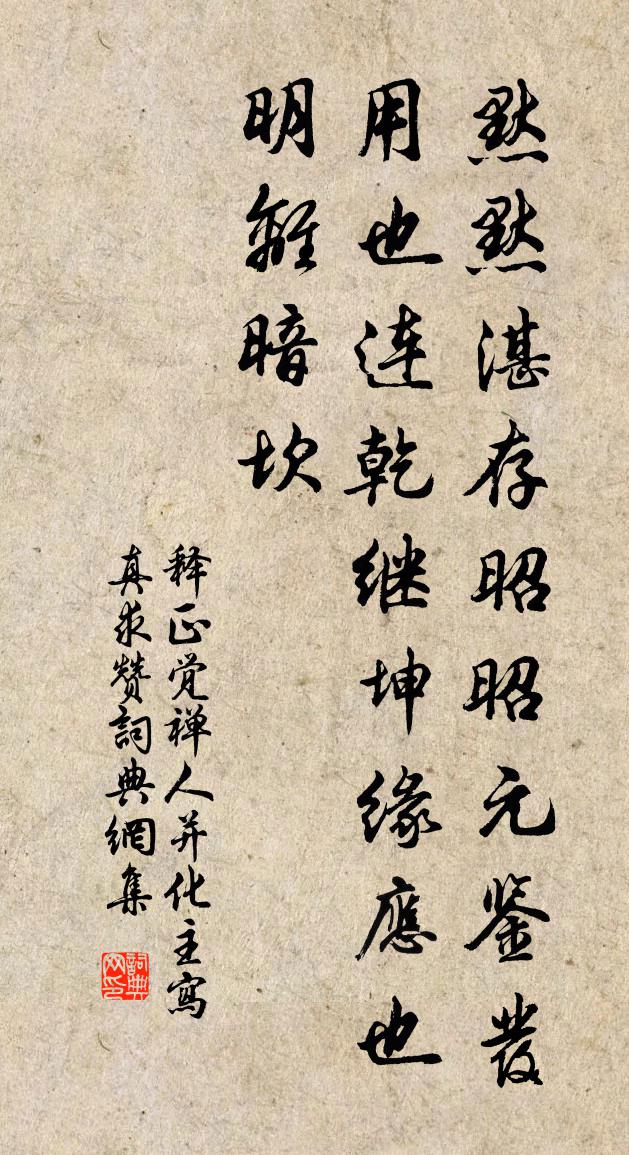 默默湛存昭昭元鉴發
用也連乾继坤缘應也
明離暗坎
释正覚禅人并化主寫
真求赞詞典網集
詞典网印